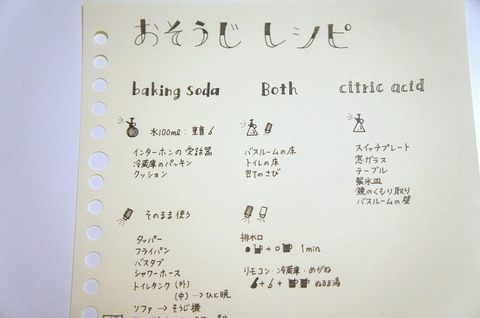 おそうじ レシピ
baking soda
Both
citric acid
水100ml : 重曹
インターホンの受話器
冷蔵庫のパッキン
クッション
バスルームの床
トイレの床
包丁のさび
スイッチプレート
窓ガラス
テーブル
製氷皿
鏡のくもり取り
バスルームの壁
そのまま使う
タッパー
フライパン
バスタブ
シャワーホース
トイレタンク (外)
(中) …→ ひと晩
ソファ → そうじ機
排水口
1 min
リモコン・冷蔵庫・めがね
ぬるま湯